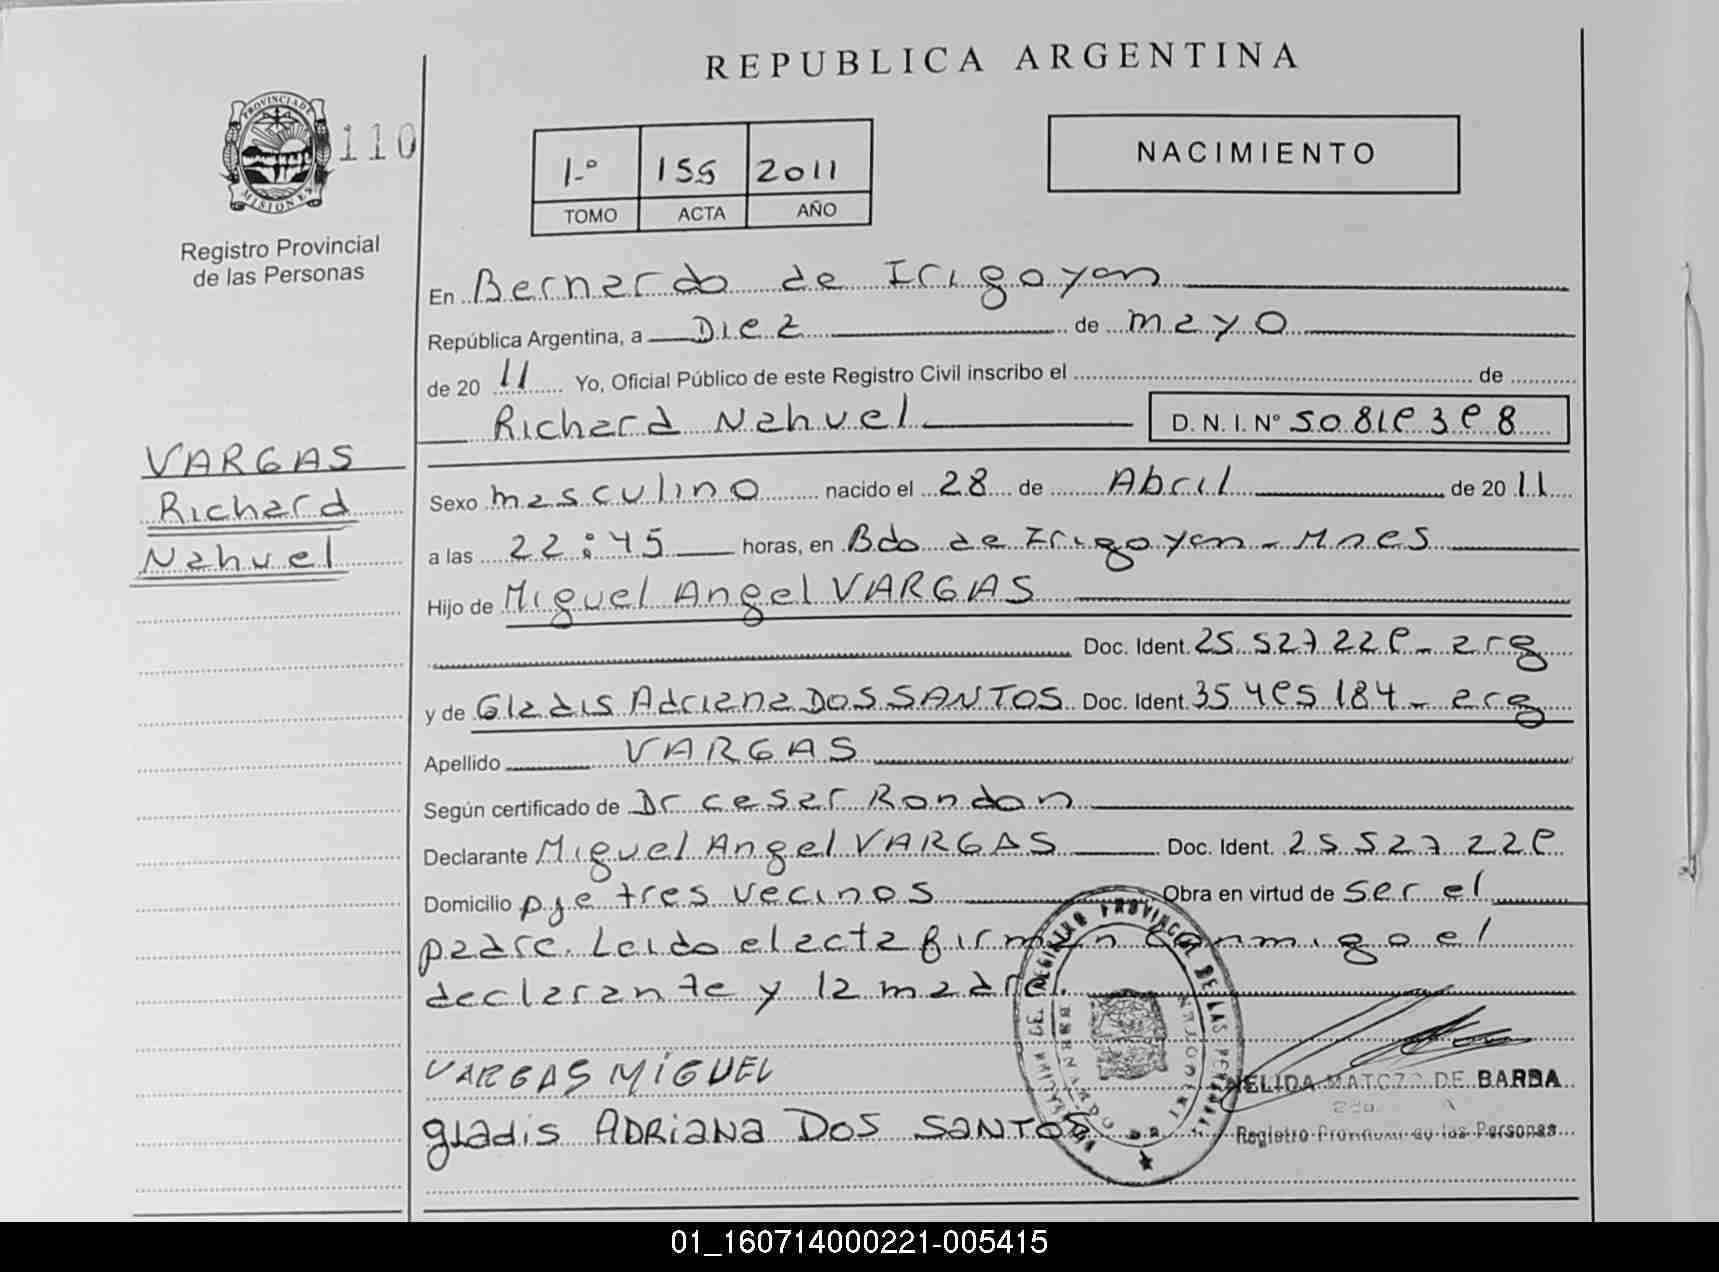 REPUBLICA ARGENTINA
PROVINCIA DE
MISIONES
110
Registro Provincial
de las Personas
1-º 155 2011
TOMO ACTA AÑO
NACIMIENTO
En Bernardo de Irigoyen
República Argentina, a Diez de mayo
de 20 11 Yo, Oficial Público de este Registro Civil inscribo el de
Richard Nahuel D. N. I. Nº 50819398
VARGAS
Richard
Nahuel
Sexo masculino nacido el 28 de Abril de 20 11
a las 22:45 horas, en Bdo de Irigoyen - Mnes
Hijo de Miguel Angel VARGAS
Doc. Ident. 25 527 229 - arg
y de Gladis Adriana DOS SANTOS Doc. Ident. 35 495 184 - arg
Apellido VARGAS
Según certificado de Dr cesar Rondan
Declarante Miguel Angel VARGAS Doc. Ident. 25 527 229
Domicilio pje tres vecinos Obra en virtud de ser el
padre. Leido el acta firman conmigo el
declarante y la madre.
VARGAS MIGUEL
gladis ADRiaNA DOS SANTOS
NELIDA DE BARBA
Registro Provincial de las Personas
REGISTRO PROVINCIAL DE LAS PERSONAS
01_160714000221-005415